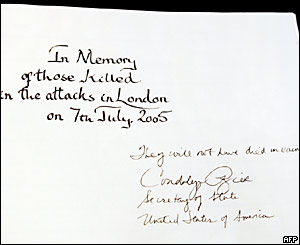 In Memory
of those killed
in the attacks in London
on 7th July, 2005
They will not have died in vain
Condoleezza Rice
Secretary of State
United States of America
AFP